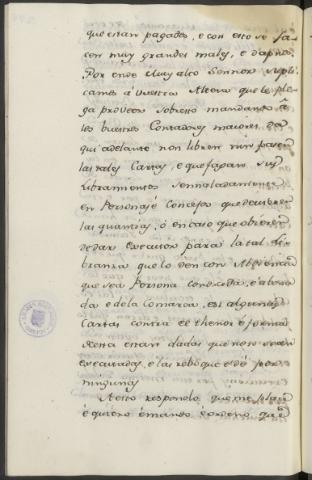 que eran pagados, e con esto se fa
cen muy grandes males, e daphos.
Por ende Muy alto Sennor supli
camos á vuestra Alteza que le ple
ga proveer sobresto mandando á
los vuestros Contadores maiores, da
qui adelante non libren nin pasen
las tales Cartas, e que fagan sus
libramientos sennaladamente
en Personas é Concejos que deuieren
las quantias, ó en caso que obieren
de dar executor para la tal li
branza que lo den con
que sea Persona conocida, é abona
da e de la Comarca, e si algunas
Cartas contra el thenor é forma
desta eran dadas que non sean
executadas, e las reboque e dé por
ningunas
A esto respondo que me place
é quiero é mando é ordeno que